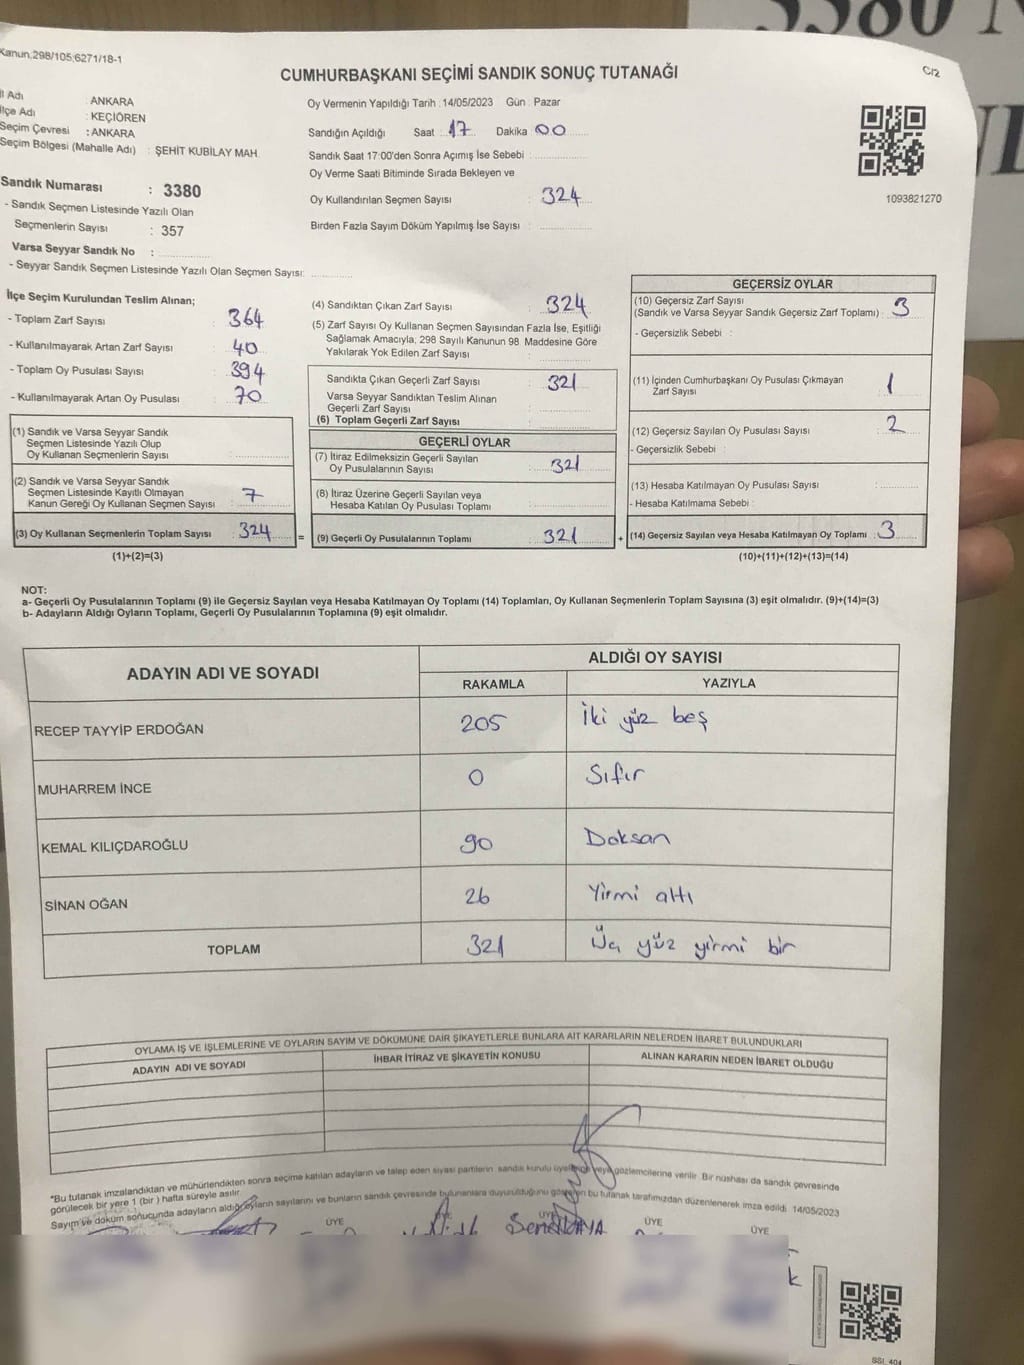 Kanun:298/105;6271/18-1
CUMHURBAŞKANI SEÇİMİ SANDIK SONUÇ TUTANAĞI
C/2
İl Adı : ANKARA
İlçe Adı : KEÇİÖREN
Seçim Çevresi : ANKARA
Seçim Bölgesi (Mahalle Adı) : ŞEHİT KUBİLAY MAH.
Sandık Numarası : 3380
- Sandık Seçmen Listesinde Yazılı Olan
Seçmenlerin Sayısı : 357
Varsa Seyyar Sandık No :
- Seyyar Sandık Seçmen Listesinde Yazılı Olan Seçmen Sayısı:
Oy Vermenin Yapıldığı Tarih : 14/05/2023 Gün : Pazar
Sandığın Açıldığı Saat 17 Dakika 00
Sandık Saat 17:00'den Sonra Açımış İse Sebebi :
Oy Verme Saati Bitiminde Sırada Bekleyen ve
Oy Kullandırılan Seçmen Sayısı : 324
Birden Fazla Sayım Döküm Yapılmış İse Sayısı :
1093821270
İlçe Seçim Kurulundan Teslim Alınan;
- Toplam Zarf Sayısı : 364
- Kullanılmayarak Artan Zarf Sayısı : 40
- Toplam Oy Pusulası Sayısı : 394
- Kullanılmayarak Artan Oy Pusulası : 70
(1) Sandık ve Varsa Seyyar Sandık
Seçmen Listesinde Yazılı Olup
Oy Kullanan Seçmenlerin Sayısı :
(2) Sandık ve Varsa Seyyar Sandık
Seçmen Listesinde Kayıtlı Olmayan
Kanun Gereği Oy Kullanan Seçmen Sayısı : 7
(3) Oy Kullanan Seçmenlerin Toplam Sayısı : 324
(1)+(2)=(3)
(4) Sandıktan Çıkan Zarf Sayısı : 324
(5) Zarf Sayısı Oy Kullanan Seçmen Sayısından Fazla İse, Eşitliği
Sağlamak Amacıyla; 298 Sayılı Kanunun 98. Maddesine Göre
Yakılarak Yok Edilen Zarf Sayısı :
Sandıkta Çıkan Geçerli Zarf Sayısı : 321
Varsa Seyyar Sandıktan Teslim Alınan
Geçerli Zarf Sayısı :
(6) Toplam Geçerli Zarf Sayısı :
GEÇERLİ OYLAR
(7) İtiraz Edilmeksizin Geçerli Sayılan
Oy Pusulalarının Sayısı : 321
(8) İtiraz Üzerine Geçerli Sayılan veya
Hesaba Katılan Oy Pusulası Toplamı :
= (9) Geçerli Oy Pusulalarının Toplamı : 321
GEÇERSİZ OYLAR
(10) Geçersiz Zarf Sayısı
(Sandık ve Varsa Seyyar Sandık Geçersiz Zarf Toplamı) : 3
- Geçersizlik Sebebi :
(11) İçinden Cumhurbaşkanı Oy Pusulası Çıkmayan
Zarf Sayısı : 1
(12) Geçersiz Sayılan Oy Pusulası Sayısı : 2
- Geçersizlik Sebebi :
(13) Hesaba Katılmayan Oy Pusulası Sayısı :
- Hesaba Katılmama Sebebi :
+ (14) Geçersiz Sayılan veya Hesaba Katılmayan Oy Toplamı : 3
(10)+(11)+(12)+(13)=(14)
NOT:
a- Geçerli Oy Pusulalarının Toplamı (9) ile Geçersiz Sayılan veya Hesaba Katılmayan Oy Toplamı (14) Toplamları, Oy Kullanan Seçmenlerin Toplam Sayısına (3) eşit olmalıdır. (9)+(14)=(3)
b- Adayların Aldığı Oyların Toplamı, Geçerli Oy Pusulalarının Toplamına (9) eşit olmalıdır.
ADAYIN ADI VE SOYADI ALDIĞI OY SAYISI
RAKAMLA YAZIYLA
RECEP TAYYİP ERDOĞAN 205 İki yüz beş
MUHARREM İNCE 0 Sıfır
KEMAL KILIÇDAROĞLU 90 Doksan
SİNAN OĞAN 26 Yirmi altı
TOPLAM 321 Üç yüz yirmi bir
OYLAMA İŞ VE İŞLEMLERİNE VE OYLARIN SAYIM VE DÖKÜMÜNE DAİR ŞİKAYETLERLE BUNLARA AİT KARARLARIN NELERDEN İBARET BULUNDUKLARI
ADAYIN ADI VE SOYADI İHBAR İTİRAZ VE ŞİKAYETİN KONUSU ALINAN KARARIN NEDEN İBARET OLDUĞU
*Bu tutanak imzalandıktan ve mühürlendikten sonra seçime katılan adayların ve talep eden siyasi partilerin sandık kurulu veya gözlemcilerine verilir. Bir nüshası da sandık çevresinde
görülecek bir yere 1 (bir) hafta süreyle asılır.
Sayım ve döküm sonucunda adayların aldığı oyların sayılarını ve bunların sandık çevresinde bulunanlara duyurulduğunu gösteren bu tutanak tarafımızdan düzenlenerek imza edildi. 14/05/2023
ÜYE ÜYE ÜYE